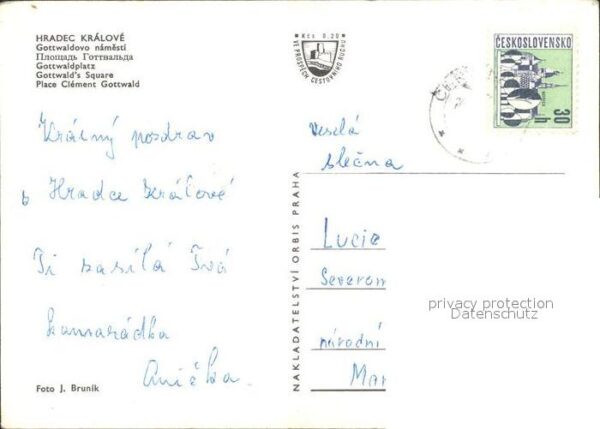 HRADEC KRÁLOVÉ
Gottwaldovo náměstí
Площадь Готтвальда
Gottwaldplatz
Gottwald's Square
Place Clément Gottwald
Krásný pozdrav
z Hradce Králové
Ti zasílá Tvá
kamarádka
Anička.
Foto J. Bruník
Kčs 0.20
VE PROSPĚCH CESTOVNÍHO RUCHU
NAKLADATELSTVÍ ORBIS PRAHA
ČESKOSLOVENSKO
30 h
Veselá
slečna
Lucie
Severom
národní
Mar
privacy protection
Datenschutz